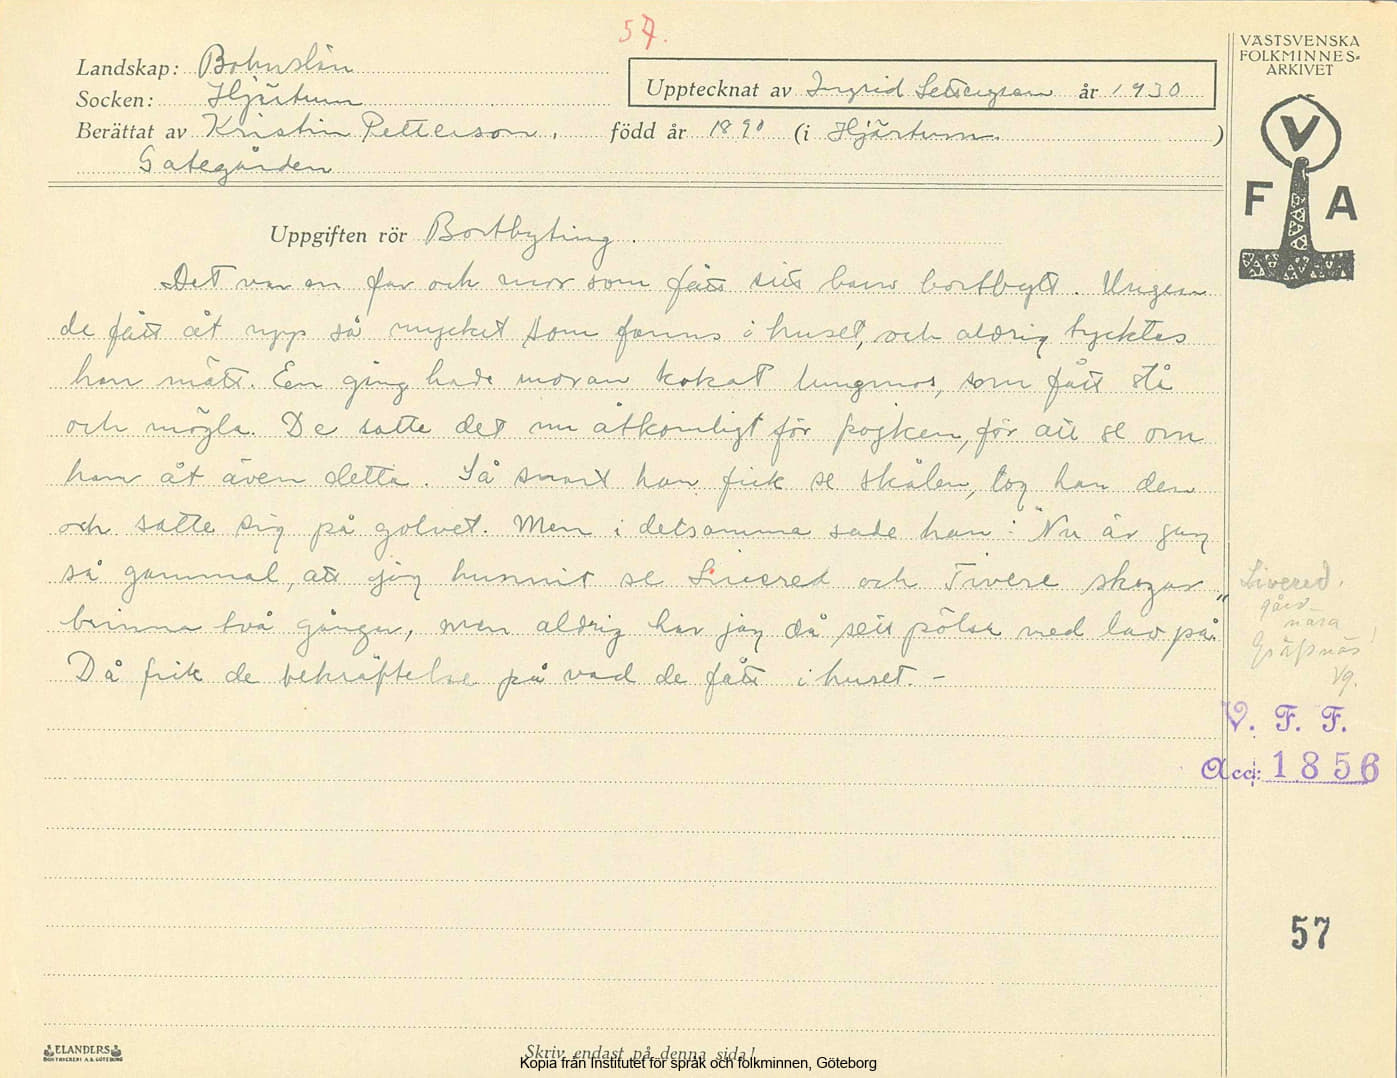 57.
VÄSTSVENSKA
FOLKMINNES-
ARKIVET
Landskap: Bohuslän
Socken: Hjärtum
Upptecknat av Ingrid år 1930
Berättat av Kristin Petterson, född år 1890 (i Hjärtum.)
Gategården
V
F A
Uppgiften rör Bortbyting.
Det var en far och mor som fått sitt barn bortbytt. Ungen
de fått åt upp så mycket som fanns i huset, och aldrig tycktes
han mätt. En gång hade moran kokat lungmos, som fått stå
och mögla. De satte det nu åtkomligt för pojken, för att se om
han åt även detta. Så snart han fick se skålen, tog han den
och satte sig på golvet. Men i detsamma sade han: "Nu är jag
så gammal, att jag hunnit se Livered och Tivere skogar
brinna två gånger, men aldrig har jag då sett pölsa med lav på."
Då fick de bekräftelse på vad de fått i huset. -
Livered.
gård
nära
Gräfsnäs
Vg.
V. F. F.
Acc: 1856
57
ELANDERS
BOKTRYCKERI A.B. GÖTEBORG
Skriv endast på denna sida!
Kopia från Institutet för språk och folkminnen, Göteborg